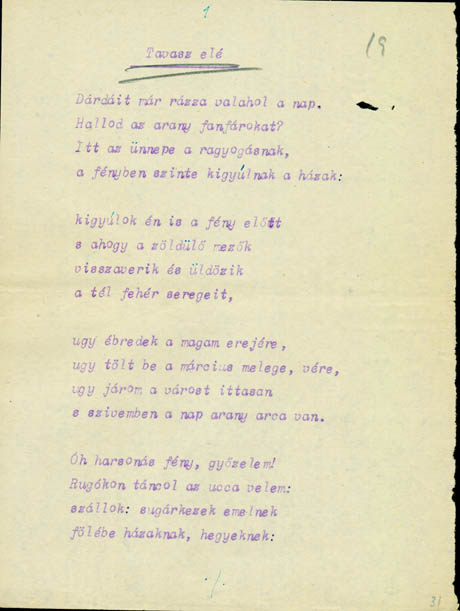 1
19
Tavasz elé
Dárdáit már rázza valahol a nap.
Hallod az arany fanfárokat?
Itt az ünnepe a ragyogásnak,
a fényben szinte kigyúlnak a házak:
kigyúlok én is a fény előtt
s ahogy a zöldülő mezők
visszaverik és üldözik
a tél fehér seregeit,
ugy ébredek a magam erejére,
ugy tölt be a március melege, vére,
ugy járom a várost ittasan
s szivemben a nap arany arca van.
Óh harsonás fény, győzelem!
Rugókon táncol az ucca velem:
szállok: sugárkezek emelnek
fölébe házaknak, hegyeknek:
./.
31